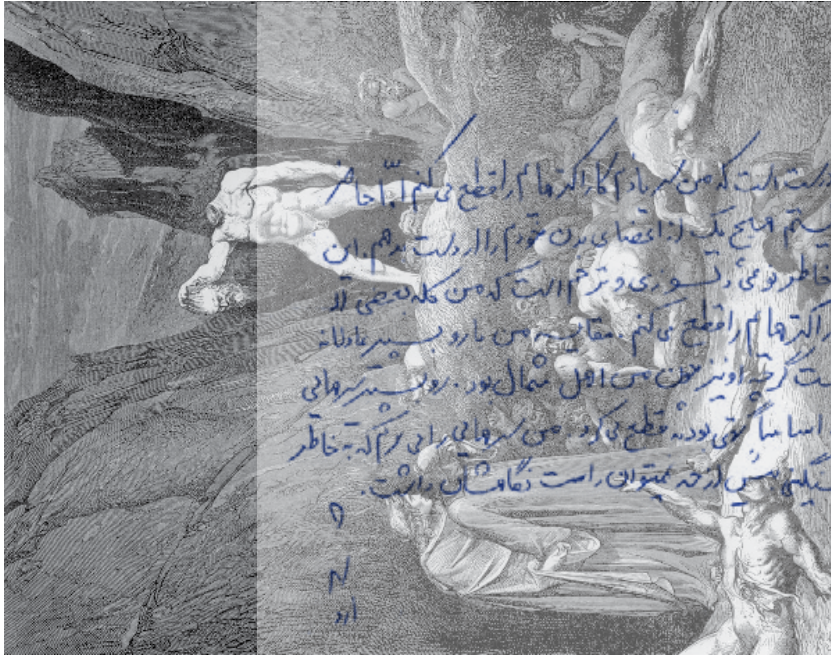 درست است که من سر کاراکترهایم را قطع می کنم امّا حاضر
نیستم هیچ یک از اعضای بدن خودم را از دست بدهم. این
خاطر نوعی و ترحم است که من کله بعضی از
کاراکترهایم را قطع می کنم. مقایسه من با روبسپیر عادلانه
نیست گرچه او نیز چون من اهل شمال بود. روبسپیر سرهایی
اساساً بودند قطع می کرد. من سرهایی را می برم که به خاطر
سنگینی بیش از حد نمیتوان راست نگاهشان داشت.